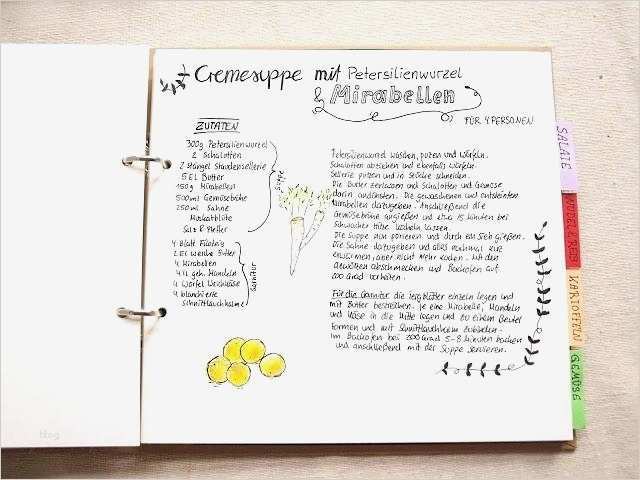 Cremesuppe mit Petersilienwurzel
& Mirabellen
FÜR 4 PERSONEN
ZUTATEN
300g Petersilienwurzel
2 Schalotten
2 Stängel Staudensellerie
5 EL Butter
150g Mirabellen
500ml Gemüsebrühe
250ml Sahne
Muskatblüte
Salz & Pfeffer
Suppe
4 Blatt
2 EL weiche Butter
4 Mirabellen
4 TL geh. Mandeln
4 Würfel
4 blanchierte
Schnittlauchhalme
Garnitur
Petersilienwurzel waschen, putzen und würfeln.
Schalotten abziehen und ebenfalls würfeln.
Sellerie putzen und in Stücke schneiden.
Die Butter zerlassen und Schalotten und Gemüse
darin andünsten. Die gewaschenen und entsteinten
Mirabellen dazugeben. Anschließend die
Gemüsebrühe angießen und etwa 15 Minuten bei
schwacher Hitze köcheln lassen.
Die Suppe nun pürieren und durch ein Sieb gießen.
Die Sahne dazugeben und alles nochmal kurz
erwärmen, aber nicht mehr kochen. Mit den
Gewürzen abschmecken und Backofen auf
200 Grad vorheizen.
Für die Garnitur die Teigblätter einzeln legen und
mit Butter bestreichen. Je eine Mirabelle, Mandeln
und Käse in die Mitte legen und zu einem Beutel
formen und mit Schnittlauchhalm zubinden.
Im Backofen bei 200 Grad 5-8 Minuten backen
und anschließend mit der Suppe servieren.
SALATE
NUDEL & REIS
KARTOFFELN
GEMÜSE
blog